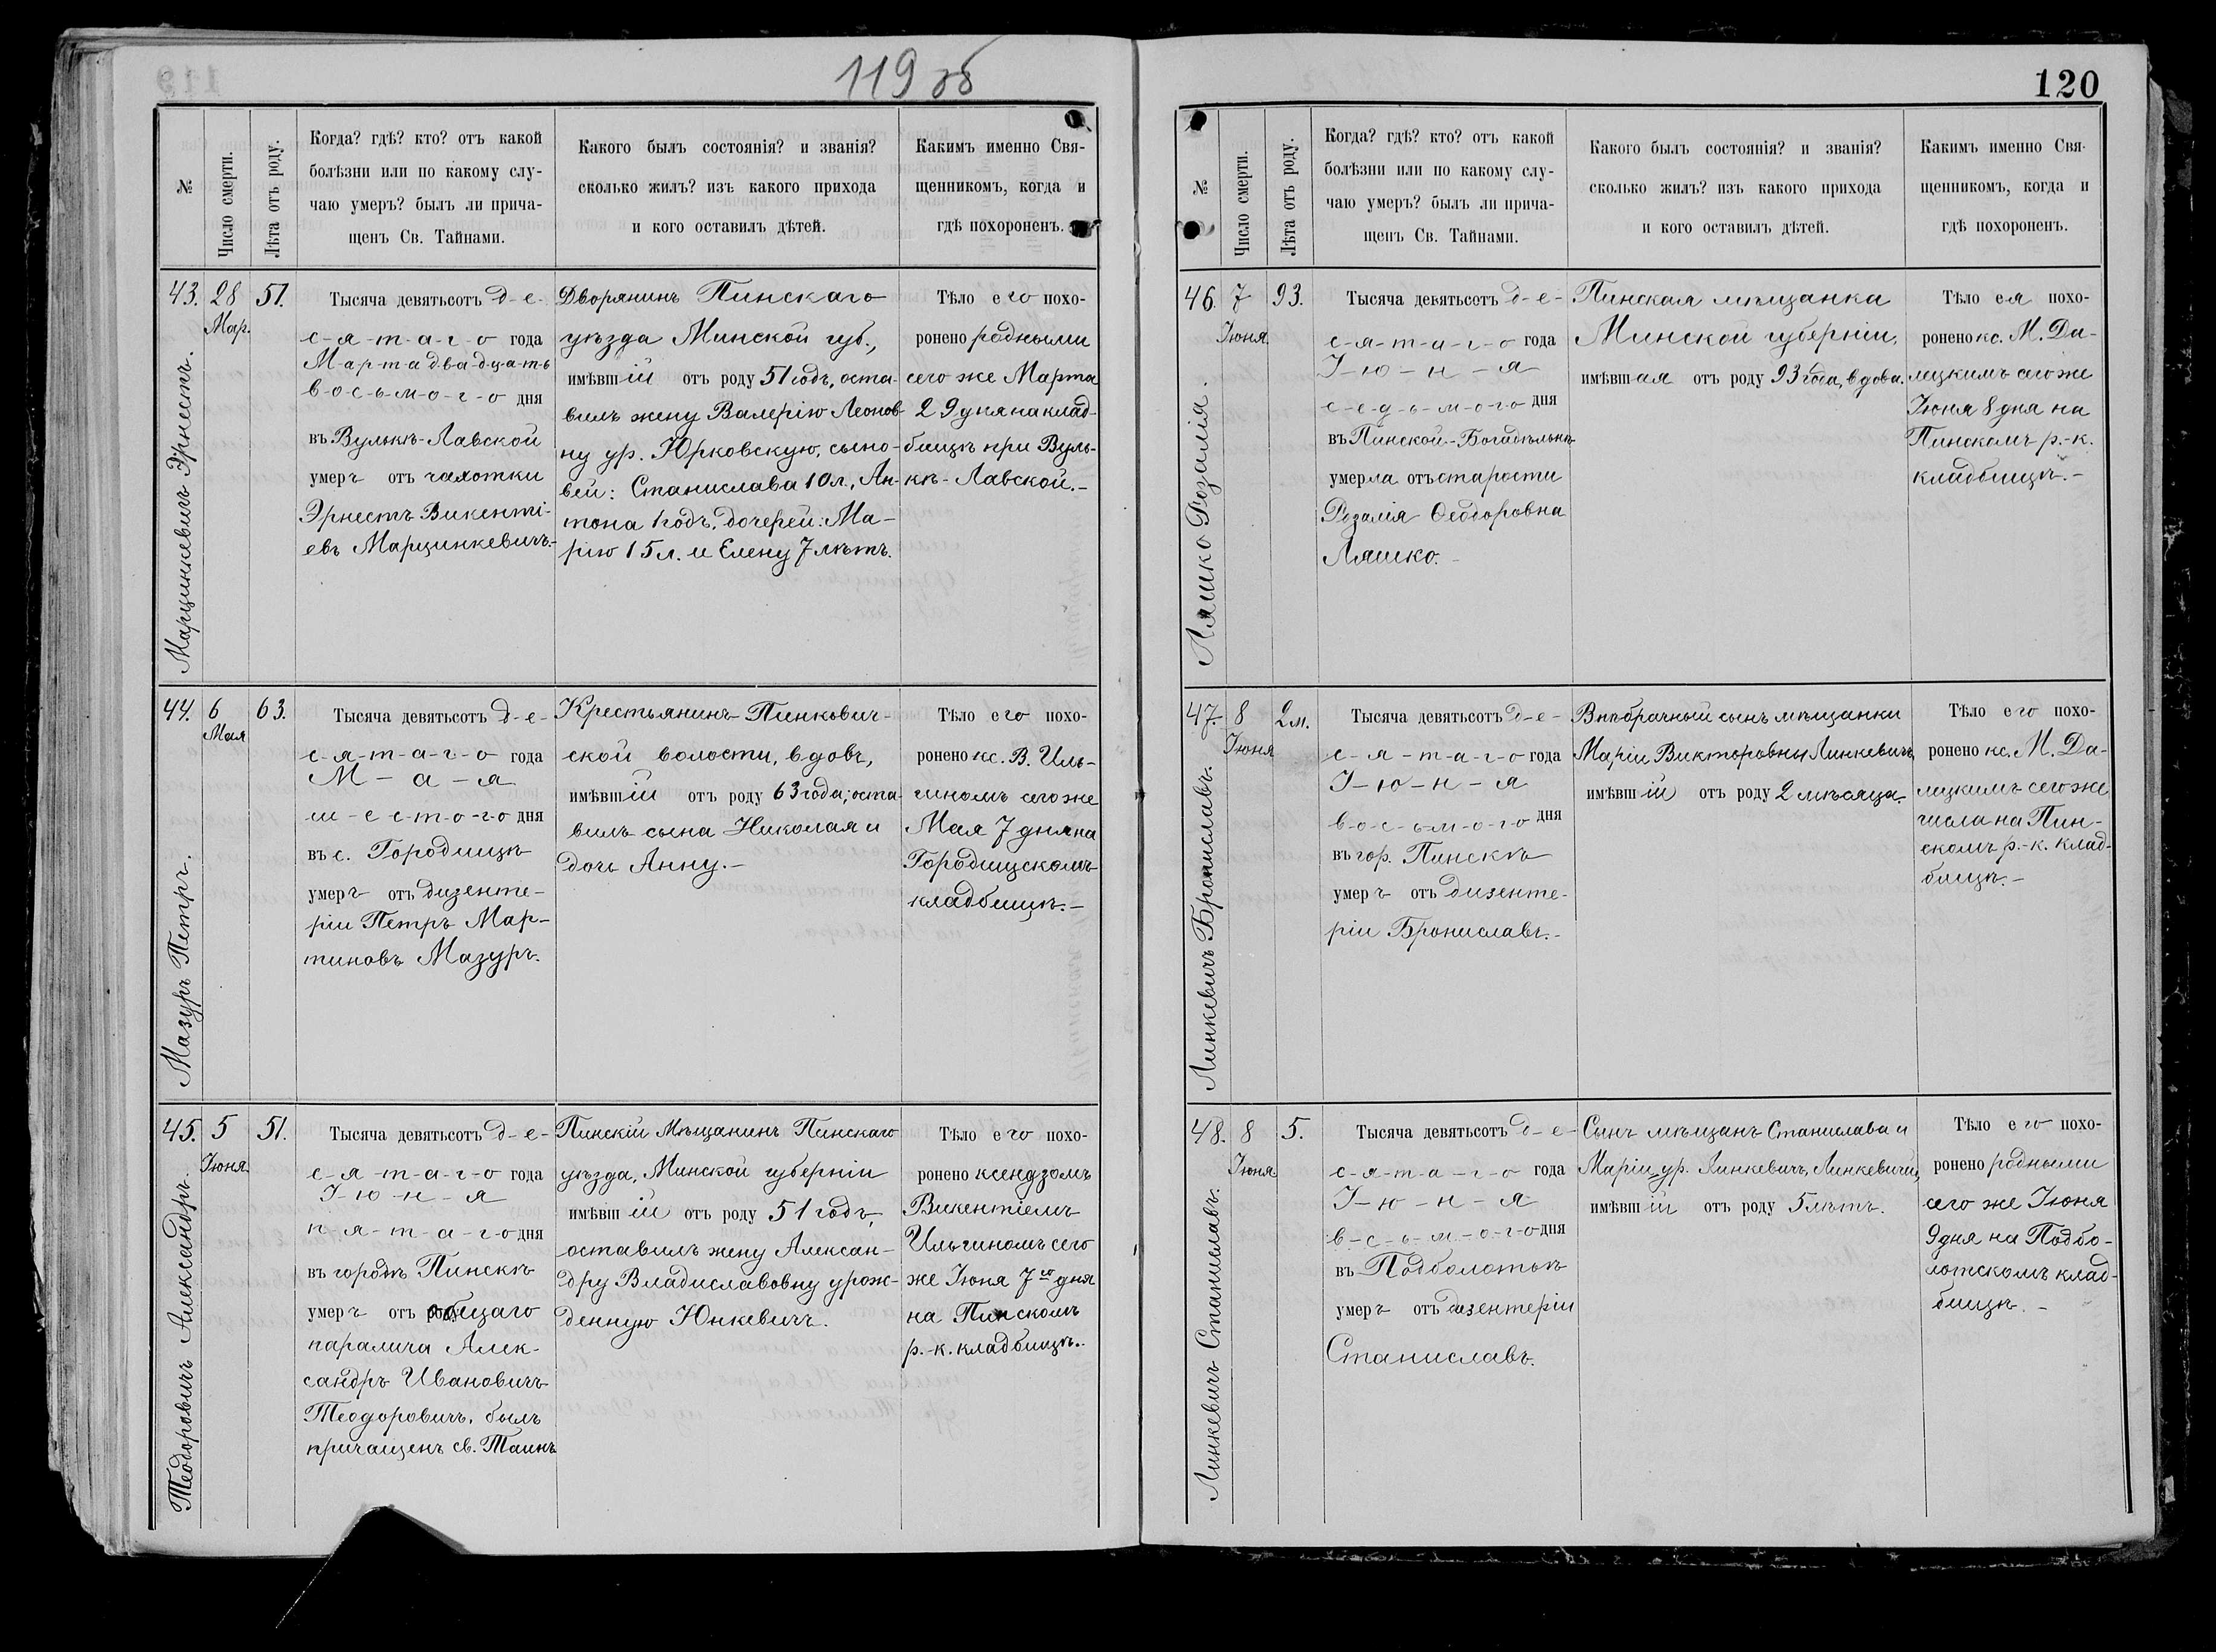 119 об
№
Число смерти.
Лѣта отъ роду.
Когда? гдѣ? кто? отъ какой
болѣзни или по какому слу-
чаю умеръ? былъ ли прича-
щенъ Св. Тайнами.
Какого былъ состоянія? и званія?
сколько жилъ? изъ какого прихода
и кого оставилъ дѣтей.
Какимъ именно Свя-
щенникомъ, когда и
гдѣ похороненъ.
43.
Марцинкевичъ Эрнестъ.
28
Мар.
51.
Тысяча девятьсотъ д-е-
с-я-т-а-г-о года
М-а-р-т-а д-в-а-д-ц-а-т-ь
в-о-с-ь-м-о-г-о дня
въ Вулькѣ-Лавской
умеръ отъ чахотки
Эрнестъ Викенті-
евъ Марцинкевичъ.-
Дворянинъ Пинскаго
уѣзда Минской губ.,
имѣвшій отъ роду 51 годъ, оста-
вилъ жену Валерію Леонов-
ну ур. Юрковскую, сыно-
вей: Станислава 10 л., Ан-
тона 1 годъ, дочерей: Ма-
рію 15 л. и Елену 7 лѣтъ.
Тѣло его похо-
ронено родными
сего же Марта
29 дня на клад-
бищѣ при Вуль-
кѣ-Лавской.-
44.
Мазуръ Петръ.
6
Мая
63.
Тысяча девятьсотъ д-е-
с-я-т-а-г-о года
М-а-я
ш-е-с-т-о-г-о дня
въ с. Городищѣ
умеръ отъ дизенте-
ріи Петръ Мар-
тиновъ Мазуръ.
Крестьянинъ Пинкович-
ской волости, вдовъ,
имѣвшій отъ роду 63 года; оста-
вилъ сына Николая и
дочь Анну.-
Тѣло его похо-
ронено кс. В. Иль-
гиномъ сего же
Мая 7 дня на
Городищскомъ
кладбищѣ.-
45.
Теодоровичъ Александръ.
5
Іюня
51.
Тысяча девятьсотъ д-е-
с-я-т-а-г-о года
І-ю-н-я
п-я-т-а-г-о дня
въ городѣ Пинскѣ
умеръ отъ общаго
паралича Алек-
сандръ Ивановичъ
Теодоровичъ, былъ
причащенъ св. Таинъ
Пинскій Мѣщанинъ Пинскаго
уѣзда, Минской губерніи
имѣвшій отъ роду 51 годъ,
оставилъ жену Алексан-
дру Владиславовну урож-
денную Юнкевичъ.
Тѣло его похо-
ронено ксендзомъ
Викентіемъ
Ильгиномъ сего
же Іюня 7го дня
на Пинскомъ
р.-к. кладбищѣ.-
120
№
Число смерти.
Лѣта отъ роду.
Когда? гдѣ? кто? отъ какой
болѣзни или по какому слу-
чаю умеръ? былъ ли прича-
щенъ Св. Тайнами.
Какого былъ состоянія? и званія?
сколько жилъ? изъ какого прихода
и кого оставилъ дѣтей.
Какимъ именно Свя-
щенникомъ, когда и
гдѣ похороненъ.
46.
Ляшко Розалія.
7
Іюня
93.
Тысяча девятьсотъ д-е-
с-я-т-а-г-о года
І-ю-н-я
с-е-д-ь-м-о-г-о дня
въ Пинской-Богадѣльнѣ
умерла отъ старости
Розалія Ѳеодоровна
Ляшко.-
Пинская мѣщанка
Минской губерніи,
имѣвшая отъ роду 93 года, вдова.
Тѣло ея похо-
ронено кс. М. Да-
лецкимъ сего же
Іюня 8 дня на
Пинскомъ р.-к.
кладбищѣ.-
47.
Линкевичъ Брониславъ.
8
Іюня
2 м.
Тысяча девятьсотъ д-е-
с-я-т-а-г-о года
І-ю-н-я
в-о-с-ь-м-о-г-о дня
въ гор. Пинскѣ
умеръ отъ дизенте-
ріи Брониславъ.-
Внѣбрачный сынъ мѣщанки
Маріи Викторовны Линкевичъ,
имѣвшій отъ роду 2 мѣсяца.-
Тѣло его похо-
ронено кс. М. Да-
лецкимъ сего же
числа на Пин-
скомъ р.-к. клад-
бищѣ.-
48.
Линкевичъ Станиславъ.
8
Іюня
5.
Тысяча девятьсотъ д-е-
с-я-т-а-г-о года
І-ю-н-я
в-с-ь-м-о-г-о дня
въ Подболотьѣ
умеръ отъ дизентеріи
Станиславъ.
Сынъ мѣщанъ Станислава и
Маріи ур. Линкевичъ, Линкевичей,
имѣвшій отъ роду 5 лѣтъ.
Тѣло его похо-
ронено родными
сего же Іюня
9 дня на Подбо-
лотскомъ клад-
бищѣ.-